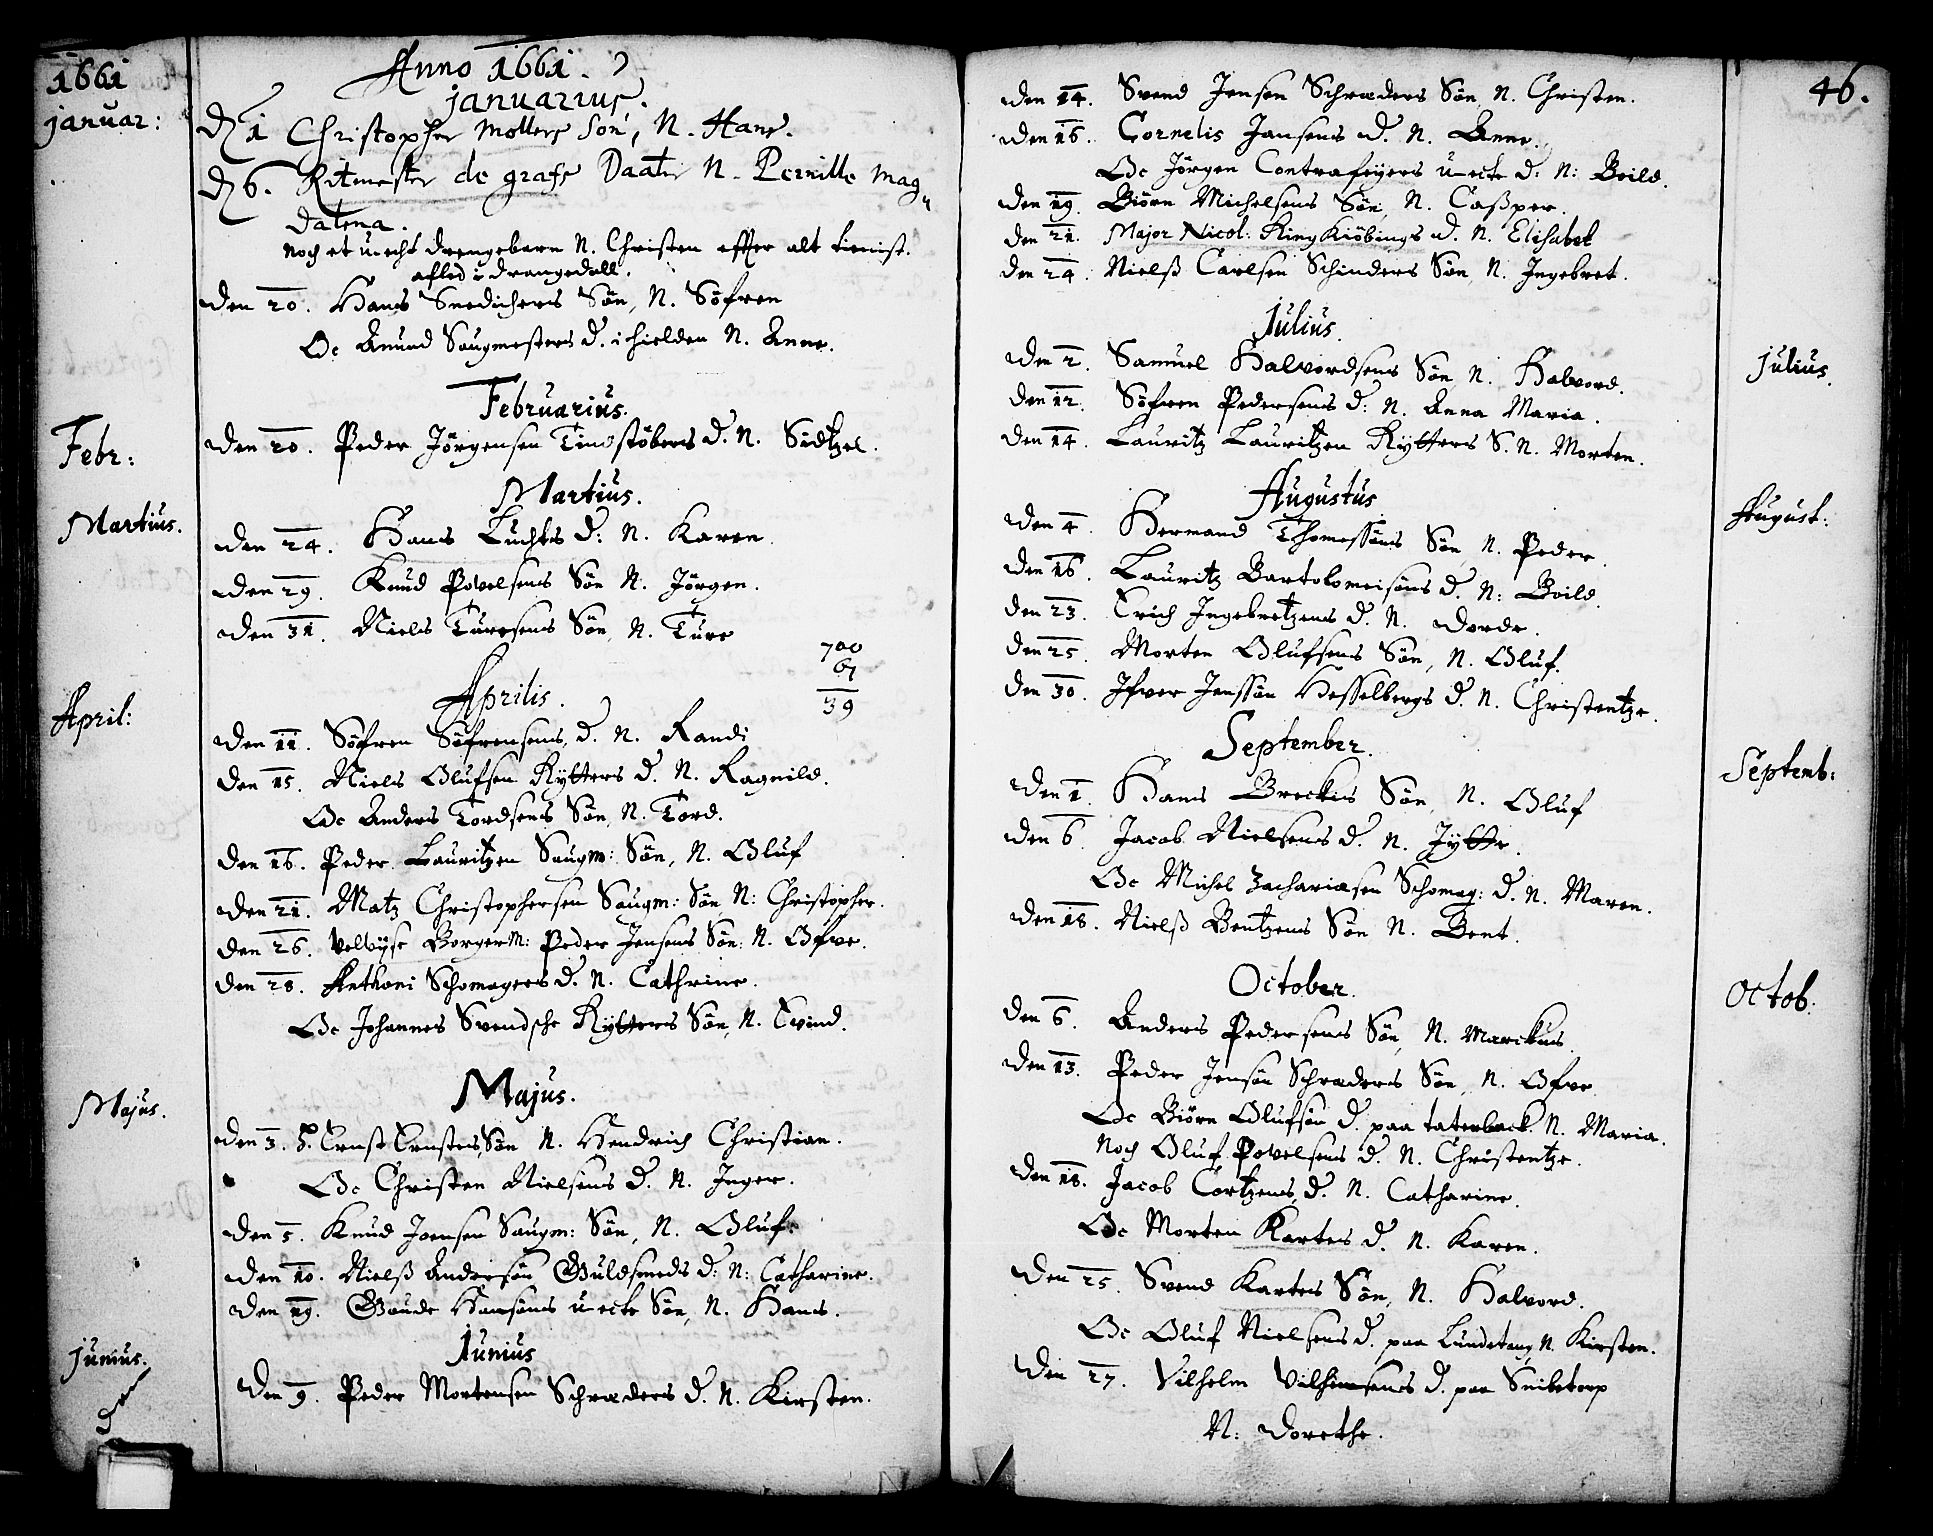 1661
januar:
Anno 1661.
januarius.
D 1 Christopher Møllers Søn, N. Hans.
D 6. Ritmester de grafs Daater N. Pernille Mag-
dalena.
Noch et uecht drengebarn N. Christen effter alt
afled i Drangedall.
den 20. Hans Snedichers Søn, N. Søfren
Oc Amund Saugmesters D. i hielden N. Anne.
Februarius.
Febr:
den 20. Peder Jørgensen Tindstøbers D. N. Sidtzel.
Martius.
Martius.
den 24. Hans Luchts D: N. Karen.
den 29. Knud Povelsens Søn N. Jørgen.
den 31. Niels Turesens Søn, N. Ture
700
61
39
Aprilis.
April:
den 11. Søfren Søfrensens D. N. Randi
den 15. Niels Olufsen Rytters D. N. Ragnild.
Oc Anders Tordsens Søn, N. Tord.
den 16. Peder Lauritzen Saugm: Søn, N. Oluf
den 21. Matz Christophersen Saugm: Søn, N: Christopher.
den 26. Velvyse BorgerM: Peder Jensens Søn: N. Ofve.
den 28. Anthoni Schomagers D. N. Cathrine.
Oc Johannes Svendsche Rytters Søn, N. Evind.
Majus.
Majus.
den 3. S. Ernst Ernstes Søn N. Hendrich Christian.
Oc Christen Nielsens D. N. Inger.
den 5. Knud Joensen Saugm: Søn, N. Oluf.
den 10. Nielß Andersøn Guldsmeds D: N: Catharine.
den 19. Gaude Hansøns uecte Søn, N. Hans.
Junius
junius.
den 9. Peder Mortensen Schræders D. N. Kirsten.
46.
den 14. Svend Jensen Schræders Søn, N. Christen.
den 16. Cornelis Jansens D. N. Anne.
Oc Jørgen Contrafeyers uecte D: N: Boild.
den 19. Biørn Michelsens Søn, N. Caßper.
den 21. Major Nicol: Ring Kiøbings D. N. Elisabet
den 24. Nielß Carlsen Schinders Søn, N. Ingebret.
Julius.
julius.
den 2. Samuel Halvordsens Søn N. Halvord.
den 12. Søfren Pedersens D: N. Anna Maria.
den 14. Lauritz Lauritzen Rytters S. N. Morten.
Augustus
August:
den 4. Hermand Thomessøns Søn, N. Peder.
den 16. Lauritz Bartolomeisøns D. N: Boild.
den 23. Erich Ingebretzens D. N. Dorde.
den 25. Morten Olufsens Søn, N. Oluf.
den 30. Ifver Jenssøn Hesselbergs D. N. Christentze.
September.
Septemb:
den 1. Hans Breckis Søn, N. Oluf
den 6. Jacob Nielsens D. N. Jytte.
Oc Michel Zachariasen Schomag: D. N. Maren.
den 18. Nielß Bentzens Søn N. Bent.
October.
Octob.
den 6. Anders Pedersens Søn, N. Marckus.
den 13. Peder Jensøn Schræders Søn, N. Ofve.
Oc Biørn Olufsøn D. paa taterback N. Maria.
Noch Oluf Povelsens D. N. Christentze.
den 18. Jacob Cortzens D. N. Catharine.
Oc Morten Kartes D. N. Karen.
den 25. Svend Kartes Søn, N. Halvord.
Oc Oluf Nielsens D. paa Lundetang N. Kirsten.
den 27. Vilhelm Vilhemsens D. paa Snibetorp
N: Dorethe.